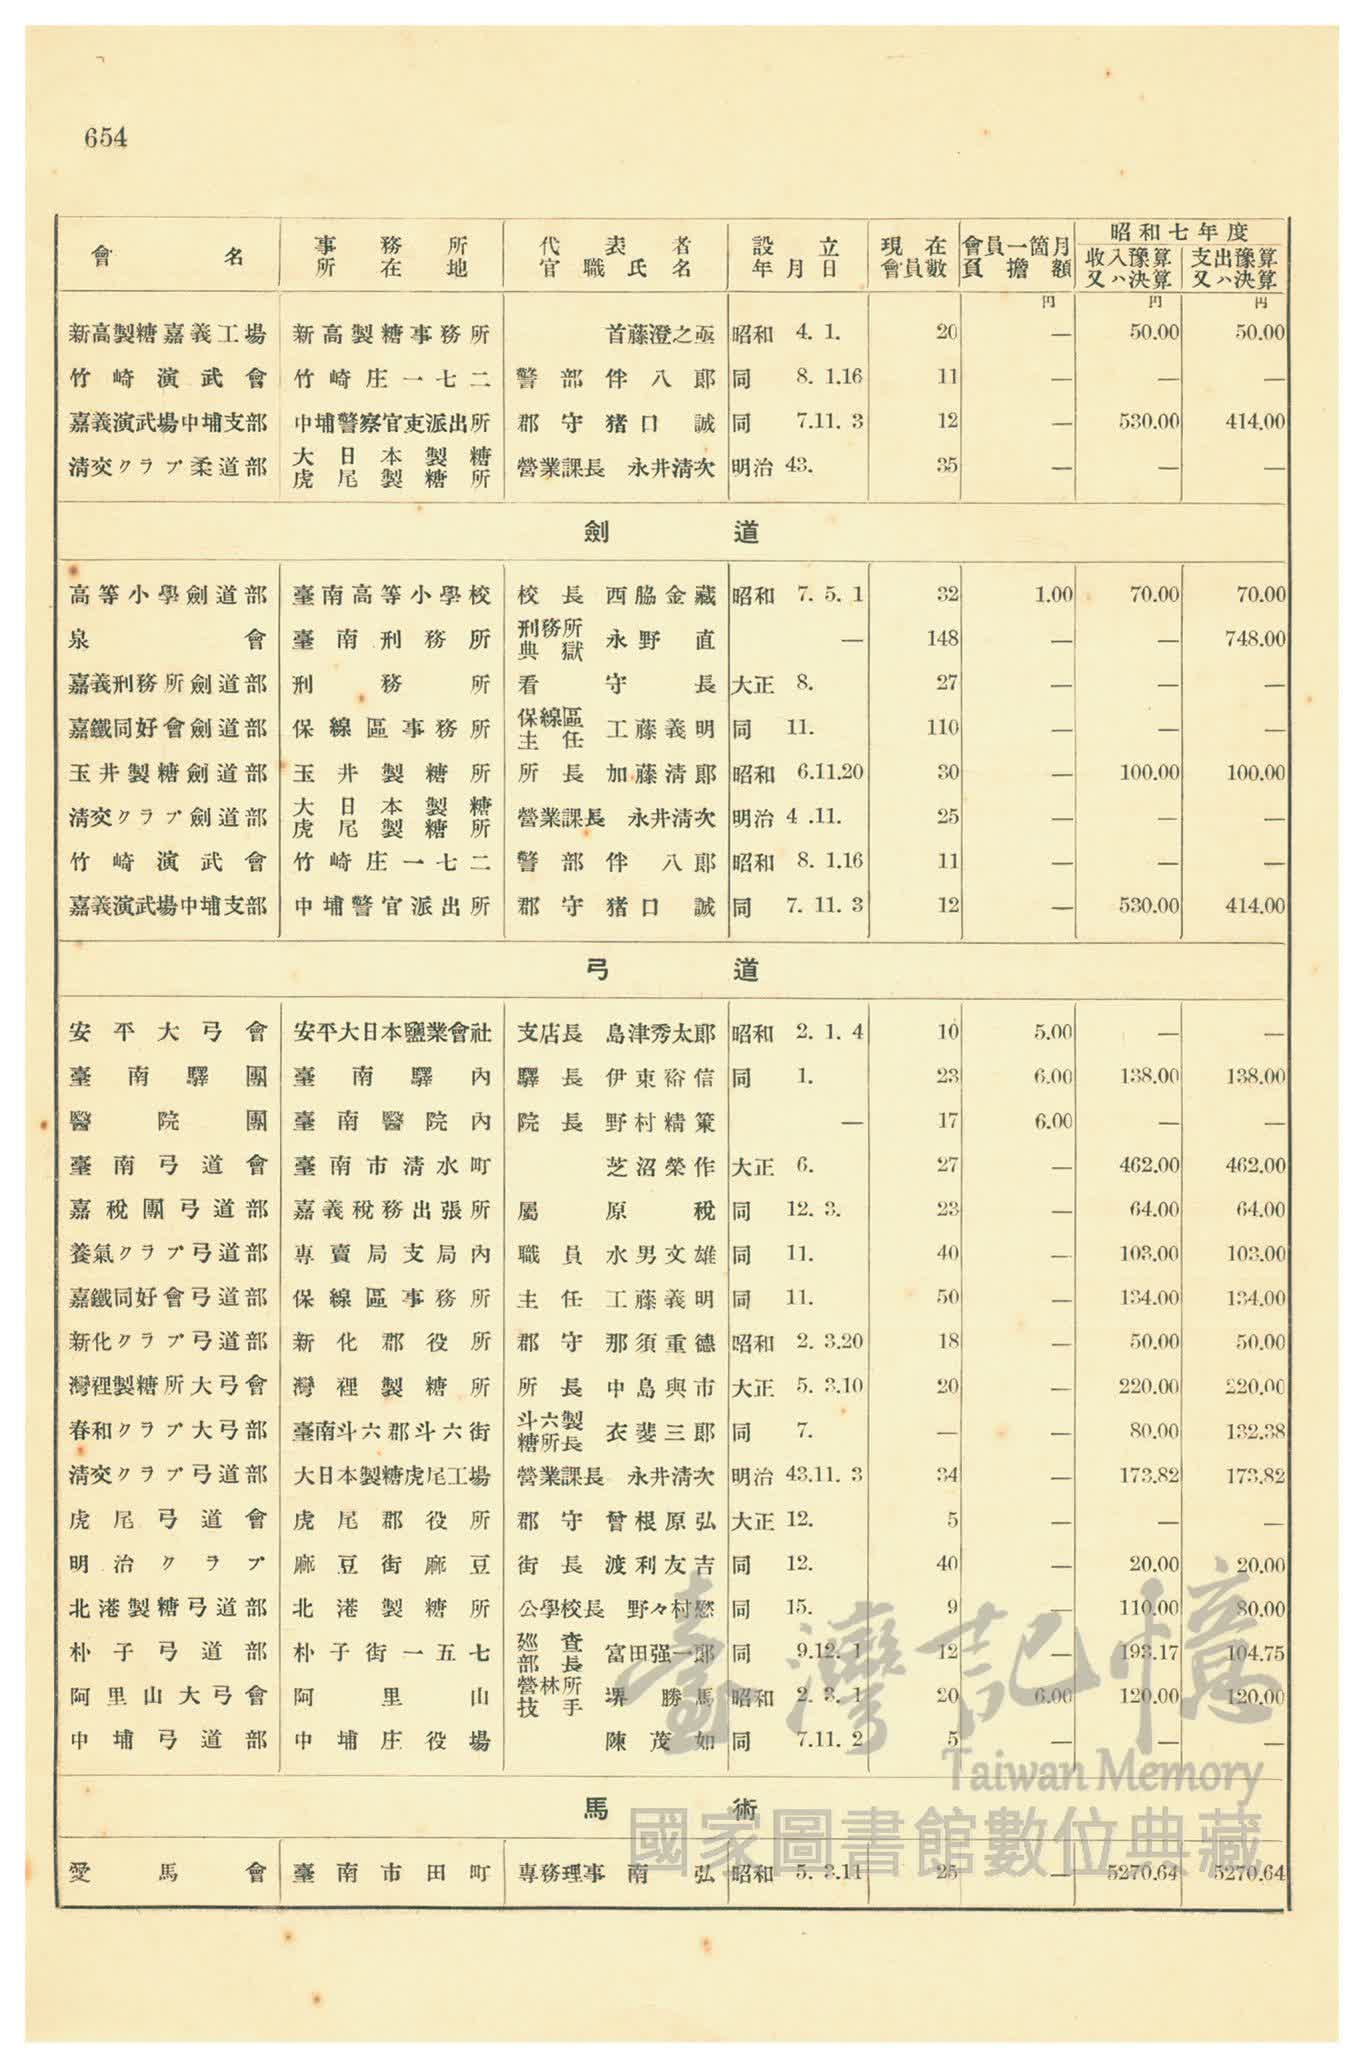 654
會名 事務所所在地 代表者官職氏名 設立年月日 現在會員數 會員一箇月負擔額 昭和七年度 收入豫算又ハ決算 支出豫算又ハ決算
円 円 円
新高製糖嘉義工場 新高製糖事務所 首藤澄之亟 昭和 4. 1. 20 — 50.00 50.00
竹崎演武會 竹崎庄一七二 警部 伴八郎 同 8. 1.16 11 — — —
嘉義演武場中埔支部 中埔警察官吏派出所 郡守 猪口誠 同 7.11. 3 12 — 530.00 414.00
清交クラブ柔道部 大日本製糖虎尾製糖所 營業課長 永井清次 明治 43. 35 — — —
劍道
高等小學劍道部 臺南高等小學校 校長 西脇金藏 昭和 7. 5. 1 32 1.00 70.00 70.00
泉會 臺南刑務所 刑務所典獄 永野直 — 148 — — 748.00
嘉義刑務所劍道部 刑務所 看守長 大正 8. 27 — — —
嘉鐵同好會劍道部 保線區事務所 保線區主任 工藤義明 同 11. 110 — — —
玉井製糖劍道部 玉井製糖所 所長 加藤清郎 昭和 6.11.20 30 — 100.00 100.00
清交クラブ劍道部 大日本製糖虎尾製糖所 營業課長 永井清次 明治 4 .11. 25 — — —
竹崎演武會 竹崎庄一七二 警部 伴八郎 昭和 8. 1.16 11 — — —
嘉義演武場中埔支部 中埔警官派出所 郡守 猪口誠 同 7. 11. 3 12 — 530.00 414.00
弓道
安平大弓會 安平大日本鹽業會社 支店長 島津秀太郎 昭和 2. 1. 4 10 5.00 — —
臺南驛團 臺南驛內 驛長 伊東裕信 同 1. 23 6.00 138.00 138.00
醫院團 臺南醫院內 院長 野村精策 — 17 6.00 — —
臺南弓道會 臺南市清水町 芝沼榮作 大正 6. 27 — 462.00 462.00
嘉稅團弓道部 嘉義稅務出張所 屬 原稅 同 12. 3. 23 — 64.00 64.00
養氣クラブ弓道部 專賣局支局內 職員 水男文雄 同 11. 40 — 103.00 103.00
嘉鐵同好會弓道部 保線區事務所 主任 工藤義明 同 11. 50 — 134.00 134.00
新化クラブ弓道部 新化郡役所 郡守 那須重德 昭和 2. 3.20 18 — 50.00 50.00
灣裡製糖所大弓會 灣裡製糖所 所長 中島與市 大正 5. 3.10 20 — 220.00 220.00
春和クラブ大弓部 臺南斗六郡斗六街 斗六製糖所長 衣斐三郎 同 7. — — 80.00 132.38
清交クラブ弓道部 大日本製糖虎尾工場 營業課長 永井清次 明治 43.11. 3 34 — 173.82 173.82
虎尾弓道會 虎尾郡役所 郡守 曾根原弘 大正 12. 5 — — —
明治クラブ 麻豆街麻豆 街長 渡利友吉 同 12. 40 — 20.00 20.00
北港製糖弓道部 北港製糖所 公學校長 野々村愍 同 15. 9 — 110.00 80.00
朴子弓道部 朴子街一五七 巡查部長 富田强一郎 同 9.12. 1 12 — 193.17 104.75
阿里山大弓會 阿里山 營林所技手 堺勝馬 昭和 2. 3. 1 20 6.00 120.00 120.00
中埔弓道部 中埔庄役場 陳茂如 同 7.11. 2 5 — — —
馬術
愛馬會 臺南市田町 專務理事 南弘 昭和 5. 3.11 25 — 5270.64 5270.64
臺灣記憶
Taiwan Memory
國家圖書館數位典藏